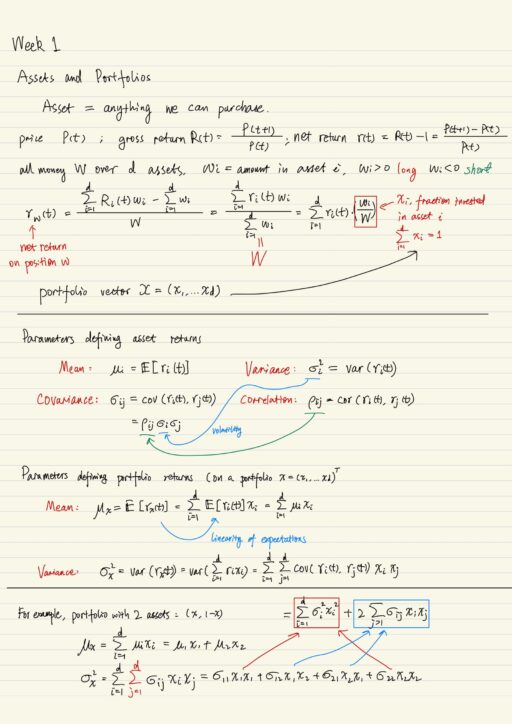 Week 1
Assets and Portfolios
Asset = anything we can purchase.
price P(t) ; gross return R(t) = P(t+1)/P(t) ; net return r(t) = R(t) - 1 = (P(t+1) - P(t))/P(t)
all money W over d assets, wᵢ = amount in asset i, wᵢ>0 long wᵢ<0 short
r_w(t) = (∑_{i=1}^d Rᵢ(t) wᵢ - ∑_{i=1}^d wᵢ)/W = (∑_{i=1}^d rᵢ(t) wᵢ)/(∑_{i=1}^d wᵢ) = ∑_{i=1}^d rᵢ(t) (wᵢ/W)
xᵢ, fraction invested
in asset i
∑_{i=1}^d xᵢ = 1
= W
net return
on position w
portfolio vector x = (x₁, ... x_d)
Parameters defining asset returns
Mean: μᵢ = E[rᵢ(t)] Variance: σᵢ² = var(rᵢ(t))
Covariance: σᵢⱼ = cov(rᵢ(t), rⱼ(t)) Correlation: ρᵢⱼ = cor(rᵢ(t), rⱼ(t))
= ρᵢⱼ σᵢ σⱼ
volatility
Parameters defining portfolio returns (on a portfolio x = (x₁, ... x_d)ᵀ
Mean: μₓ = E[rₓ(t)] = ∑_{i=1}^d E[rᵢ(t)] xᵢ = ∑_{i=1}^d μᵢ xᵢ
linearity of expectations
Variance: σₓ² = var(rₓ(t)) = var(∑_{i=1}^d rᵢ xᵢ) = ∑_{i=1}^d ∑_{j=1}^d cov(rᵢ(t), rⱼ(t)) xᵢ xⱼ
For example, portfolio with 2 assets: (x, 1-x) = ∑_{i=1}^d σᵢ² xᵢ² + 2 ∑_{j>i} σᵢⱼ xᵢ xⱼ
μₓ = ∑_{i=1}^d μᵢ xᵢ = μ₁ x₁ + μ₂ x₂
σₓ² = ∑_{i=1}^d ∑_{j=1}^d σᵢⱼ xᵢ xⱼ = σ₁₁ x₁ x₁ + σ₁₂ x₁ x₂ + σ₂₁ x₂ x₁ + σ₂₂ x₂ x₂